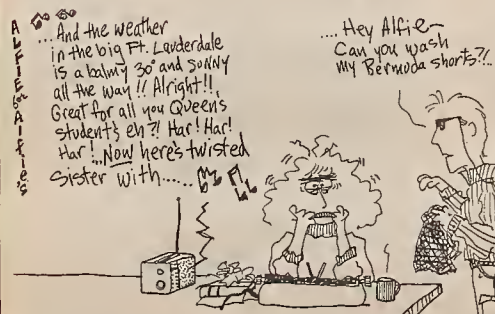 ALFIE for Alfie's
....And the weather
in the big Ft. Lauderdale
is a balmy 30° and SUNNY
all the way!! Alright!!,
Great for all you Queens
student's eh?! Har! Har!
Har!...Now here's twisted
Sister with......
.... Hey Alfie—
Can you wash
my Bermuda shorts?!..